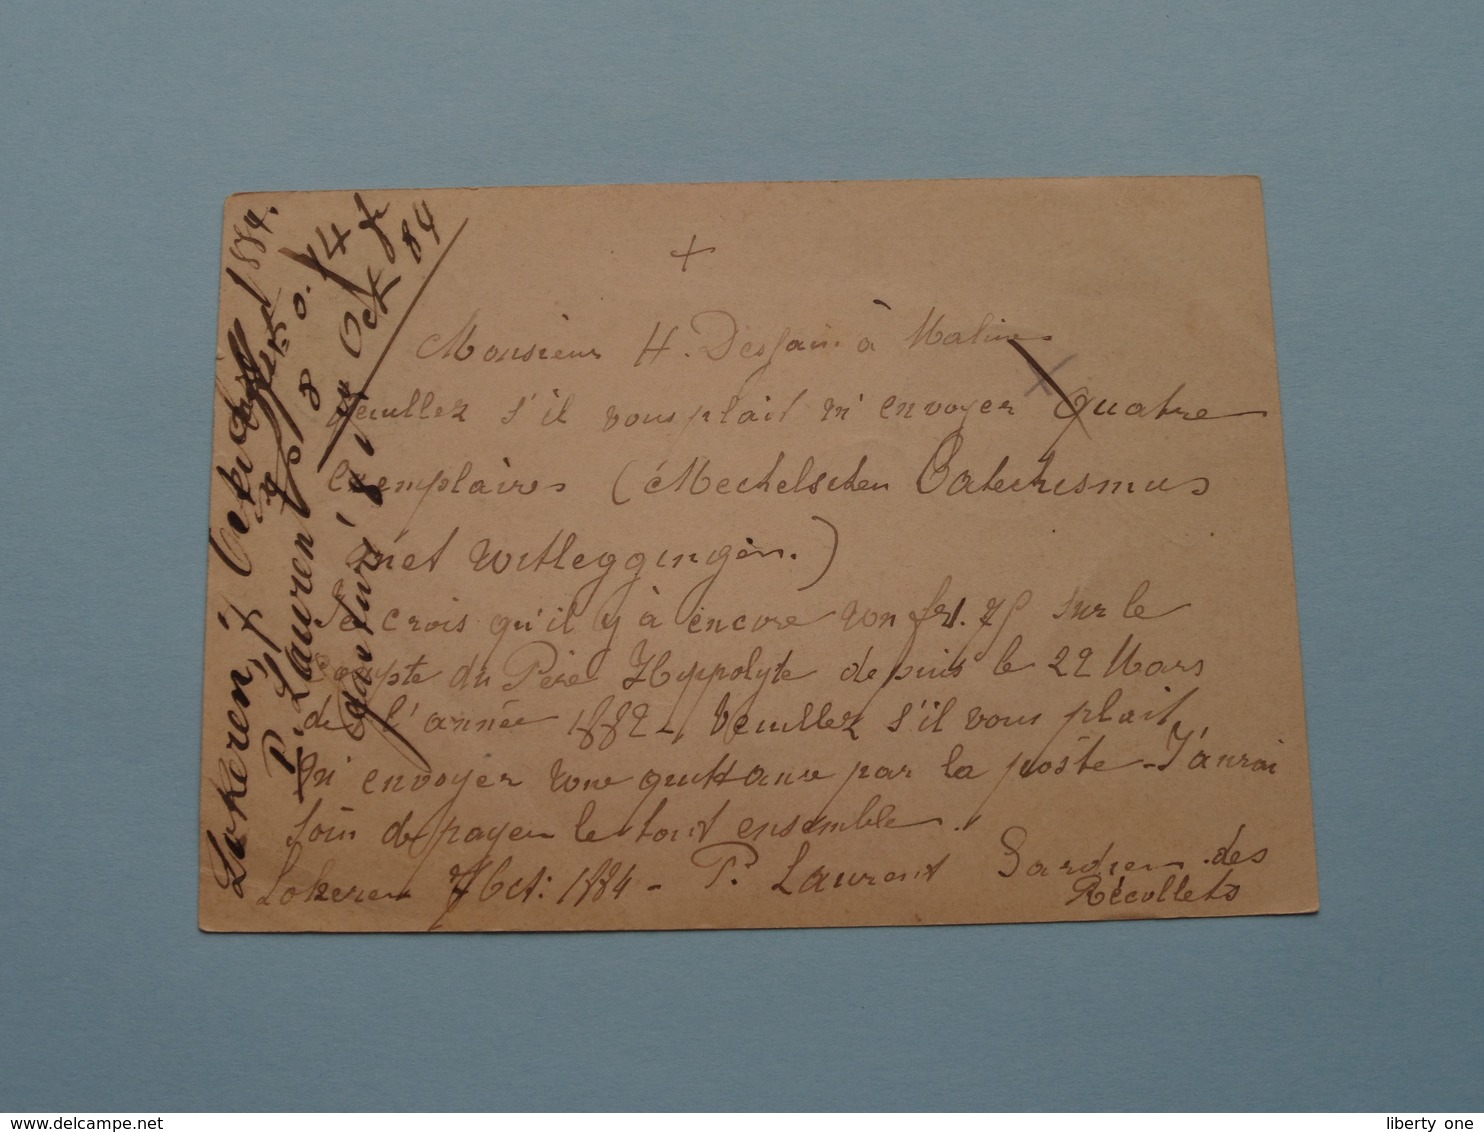 Lokeren, 7 Octobre 1884.
P. Laurent
8
14
Oct 84
+
Monsieur H. Dessain à Malines
Veuillez s'il vous plait m'envoyer quatre
Exemplaires (Mechelschen Catechismus
met Witleggingen.)
Je crois qu'il y à encore un fr. 75 sur le
Compte du Père Hyppolyte depuis le 22 Mars
de l'année 1882 - Veuillez s'il vous plait
m'envoyer une quittance par la poste - J'aurai
soin de payer le tout ensemble.
Lokeren 7 Oct: 1884 - P. Laurent Gardien des
Récollets
liberty one